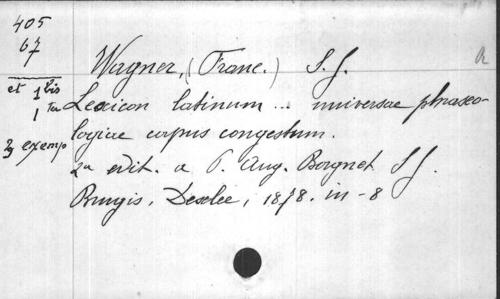 405
67
et 1 bis
1 ter
3 exemp
Wagner, (Franc.) S.J.
Lexicon latinum ... universae phraseo-
logiae corpus congestum.
2a edit. a P. Aug. Borgnet S J.
Brugis, Desclée, 1878. in-8